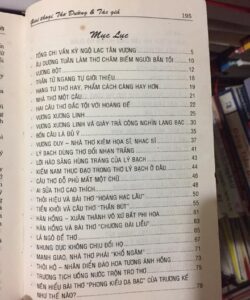 Giai thoại Thơ Đường & Tác giả 195
Mục Lục
- TỐNG CHI VẤN KỲ NGỘ LẠC TÂN VƯƠNG 5
- ÂU DƯƠNG TUÂN LÀM THƠ CHÂM BIẾM NGƯỜI BẮN TỒI
- VƯƠNG BỘT
- THẦN TỬ NGANG TỰ GIỚI THIỆU
- HẠNG TƯ THƠ HAY, PHẨM CÁCH CÀNG HAY HƠN
- NHÀ THƠ MỘT CÂU
- HAI CÂU THƠ ĐẮC TỘI VỚI HOÀNG ĐẾ
- VƯƠNG XƯƠNG LINH
- VƯƠNG XƯƠNG LINH VÀ GIÀY TRÁ CÔNG NGHÌN LẠNG BẠC
- BỐN CÂU LÀ ĐỦ Ý
- VƯƠNG DUY – NHÀ THƠ KIÊM HỌA SĨ, NHẠC SĨ
- LÝ BẠCH DÙNG THƠ ĐỐI NHAN TRẮNG
- LỜI HÀO SẢNG HÙNG TRÁNG CỦA LÝ BẠCH
- KIẾM NAM THỤC ĐẠO TRONG THƠ LÝ BẠCH Ở ĐÂU
- CÂU THƠ ĐỖ PHỦ MẤT MỘT CHỮ
- AI SỬA THƠ CAO THÍCH
- THÔI HIỆU VÀ BÀI THƠ "HOÀNG HẠC LÂU"
- TIỀN KHỞI VÀ CÂU THƠ "THẦN BÚT"
- HÀN HỒNG – XUÂN THÀNH VÔ XỨ BẤT PHI HOA
- HÀN HỒNG VÀ BÀI THƠ "CHƯƠNG ĐÀI LIỄU"
- LÁ NGÔ ĐỀ THƠ
- NHUNG DỤC KHÔNG CHỊU ĐỔI HỌ
- MẠNH GIAO, NHÀ THƠ PHÁI "KHỔ NGÂM"
- THÔI HỘ – NHÂN DIỆN ĐÀO HOA TƯƠNG ÁNH HỒNG
- TRƯƠNG TỊCH UỐNG NƯỚC TRỘN TRO THƠ
- NÊN HIỂU BÀI THƠ "PHONG KIỀU DẠ BẠC" CỦA TRƯƠNG KẾ
NHƯ THẾ NÀO?